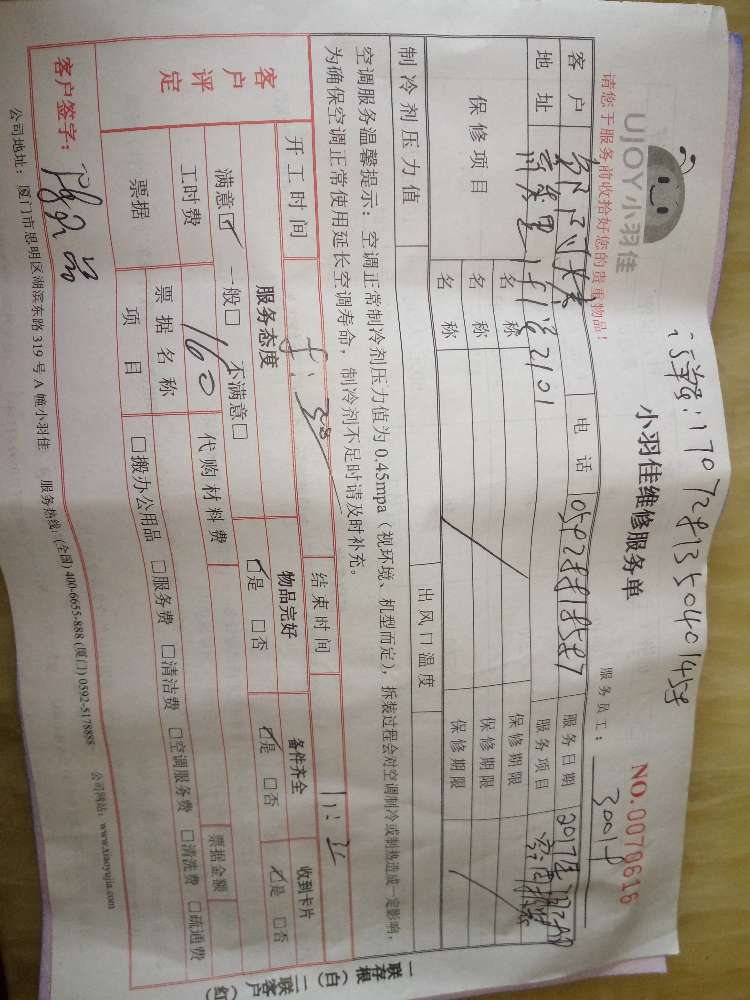 UJOY小羽佳
请您于服务前收拾好您的贵重物品!
小羽佳维修服务单
NO.0070616
服务员工:
客户 电话 服务日期
地址 2101 服务项目
保修项目 名称 保修期限
名称 保修期限
名称 保修期限
制冷剂压力值 出风口温度
空调服务温馨提示:空调正常制冷剂压力值为0.45mpa(视环境、机型而定),拆装过程会对空调制冷或制热造成一定影响,
为确保空调正常使用延长空调寿命,制冷剂不足时请及时补充。
开工时间 结束时间
客户评定 服务态度 物品完好 备件齐全 收到卡片
满意☑ 一般□ 不满意□ ☑是 □否 ☑是 □否 ☑是 □否
工时费 160 代购材料费
票据 票据名称 票据金额
项目 □搬办公用品 □服务费 □清洁费 □空调服务费 □清洗费 □疏通费
客户签字:
公司地址:厦门市思明区湖滨东路319号A幢小羽佳 服务热线:(全国)400-6655-888(厦门)0592-5178888 公司网站:www.xiaoyujia.com
一联存根(白) 二联客户(红)